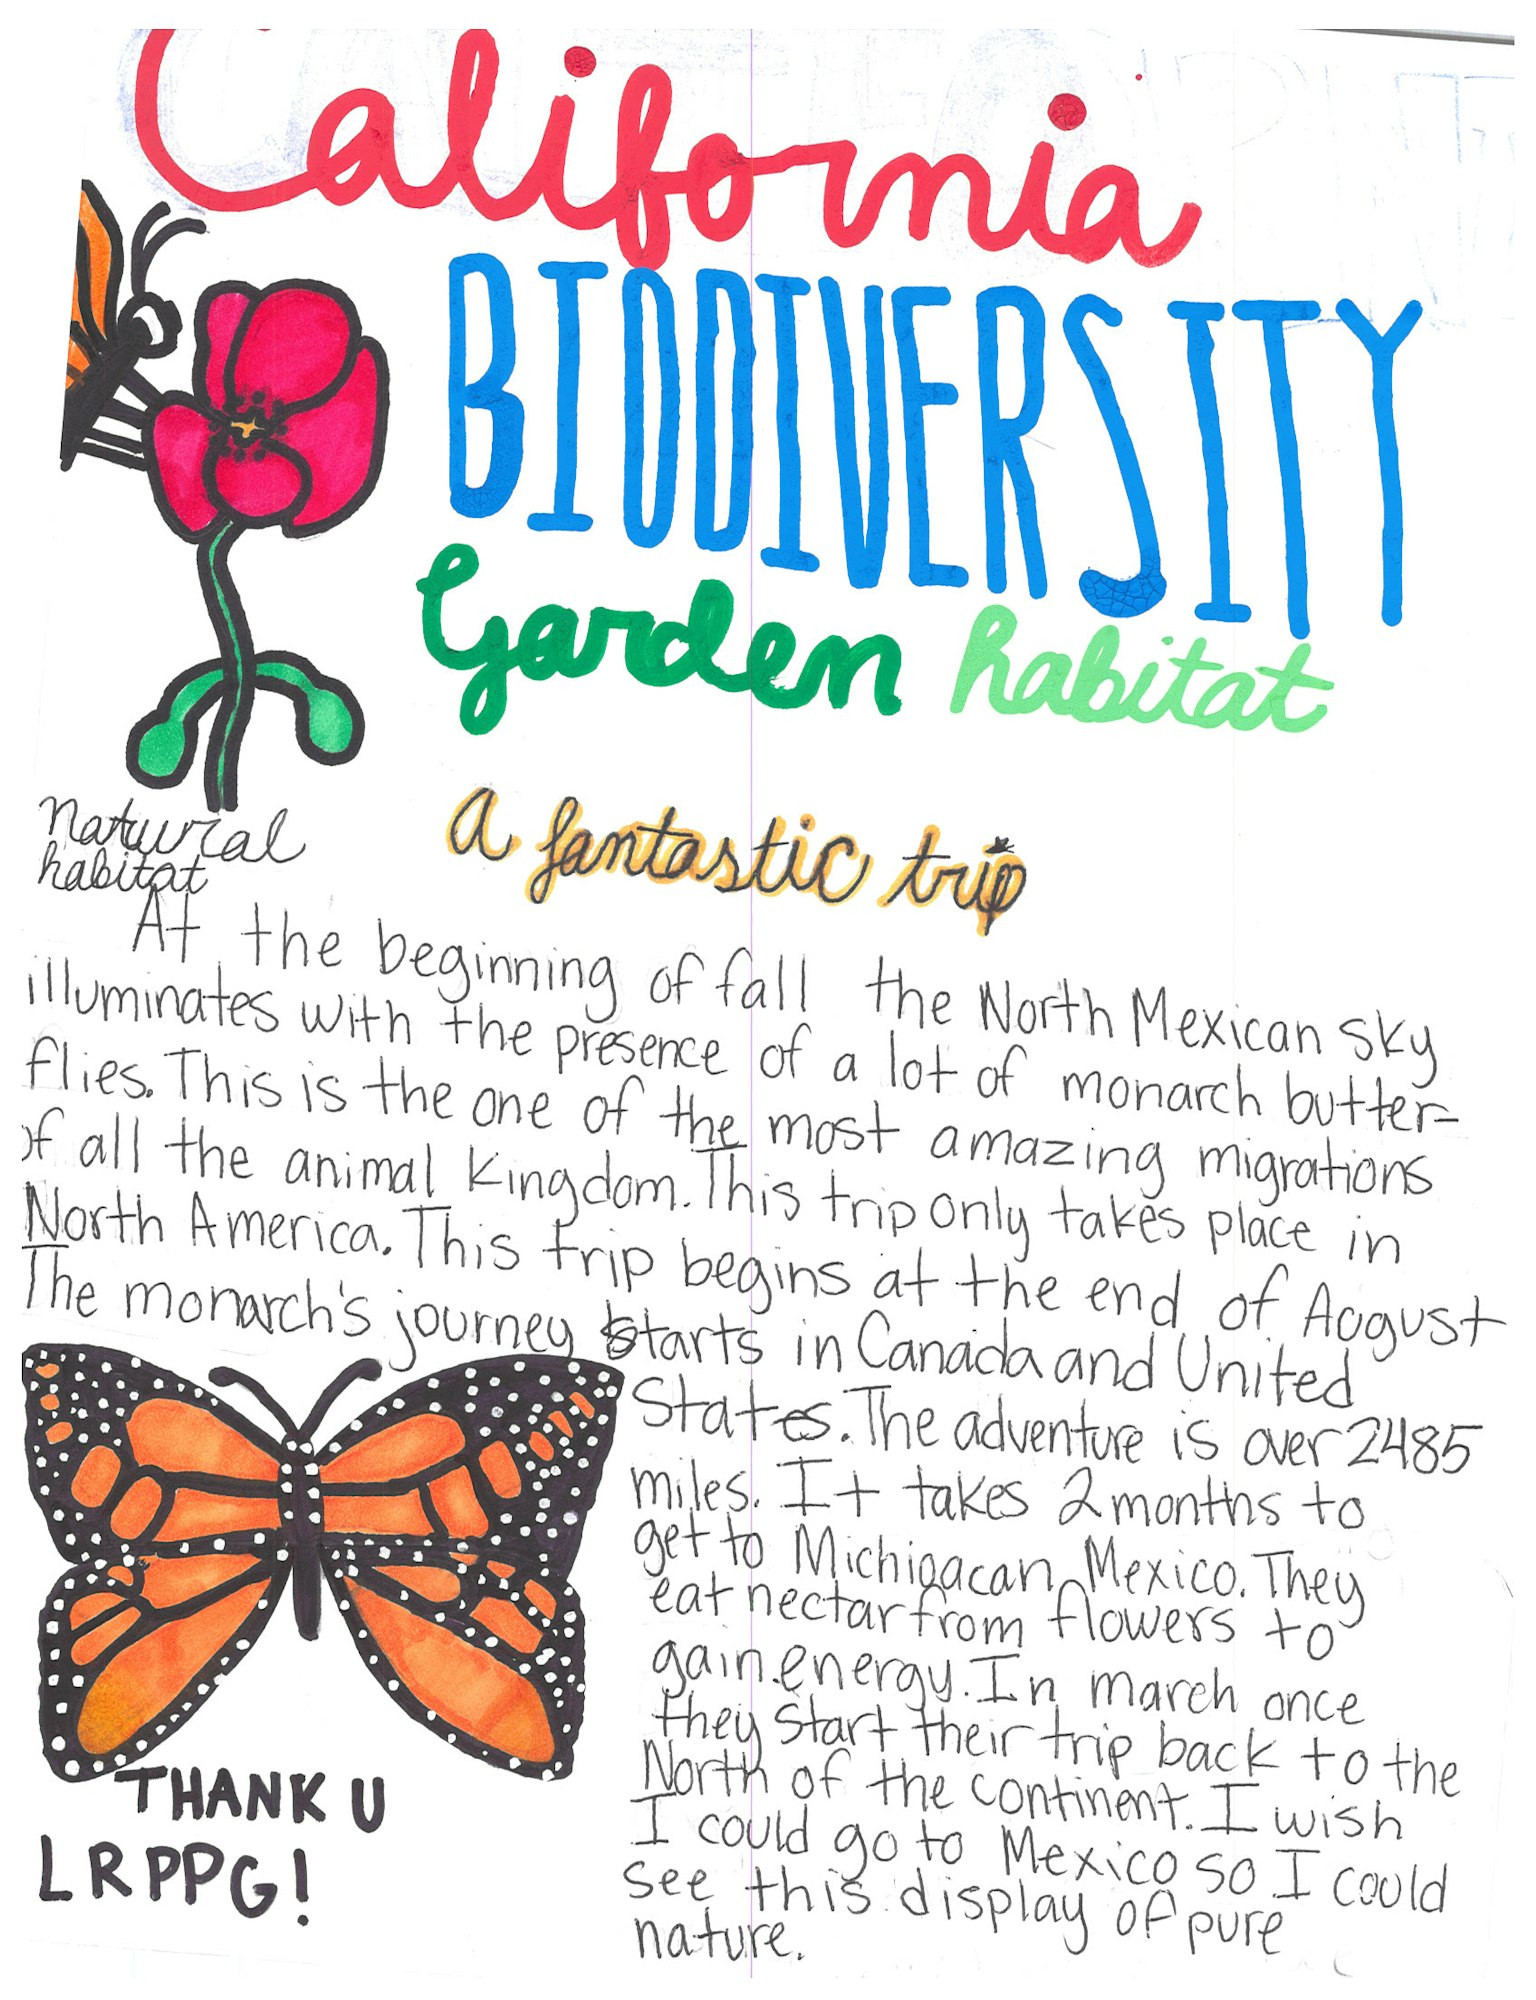 California
BIODIVERSITY
Garden habitat
natural
habitat
a fantastic trip
At the beginning of fall the North Mexican sky
illuminates with the presence of a lot of monarch butter-
flies. This is the one of the most amazing migrations
of all the animal kingdom. This trip only takes place in
North America. This trip begins at the end of August
The monarch's journey starts in Canada and United
States. The adventure is over 2485
miles. It takes 2 months to
get to Michioacan, Mexico. They
eat nectar from flowers to
gain energy. In march once
they start their trip back to the
North of the continent. I wish
I could go to Mexico so I could
see this display of pure
nature.
THANK U
LRPPG!